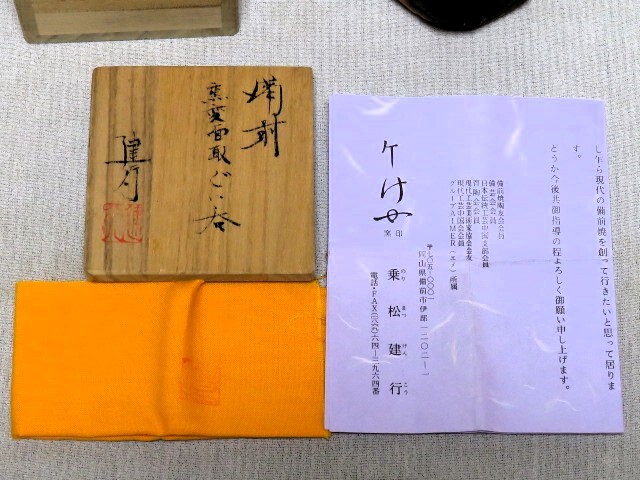 備前
窯変面取ぐい呑
建行
し乍ら現代の備前焼を創って行きたいと思って居りま
す。
どうか今後共御指導の程よろしく御願い申し上げます。
備前焼陶友会会員
備芸会会員
日本伝統工芸中国支部会員
現代工芸美術家協会会友
現代工芸中国会会員
グループAIMER(エメ)所属
窯印
〒七〇五-〇〇〇一
岡山県備前市伊部一二〇二-一
のり まつ けん こう
乗松建行
電話・FAX(〇八六九)六四-三九六四番